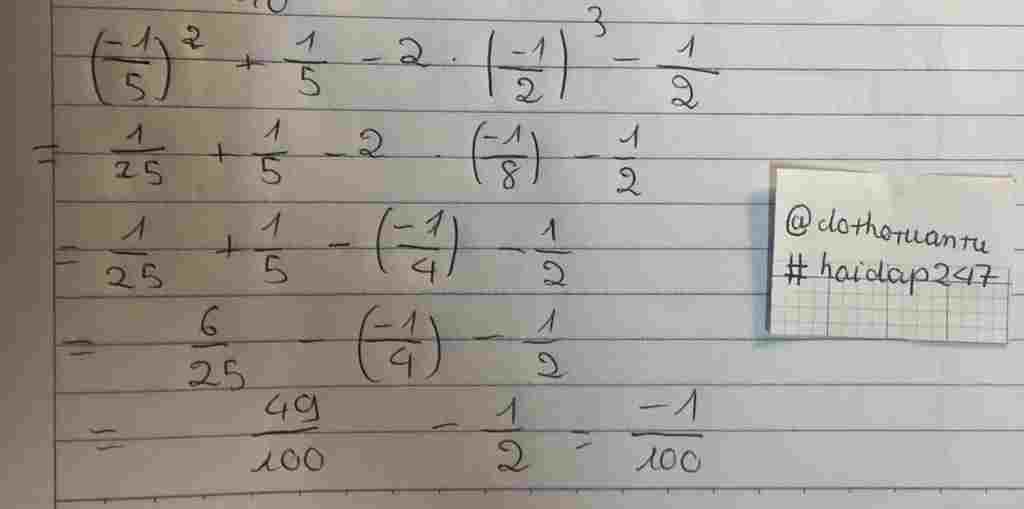 (-1/5)² + 1/5 - 2 · (-1/2)³ - 1/2
= 1/25 + 1/5 - 2 · (-1/8) - 1/2
= 1/25 + 1/5 - (-1/4) - 1/2
= 6/25 - (-1/4) - 1/2
= 49/100 - 1/2 = -1/100
@dothotuantu
#haidap247